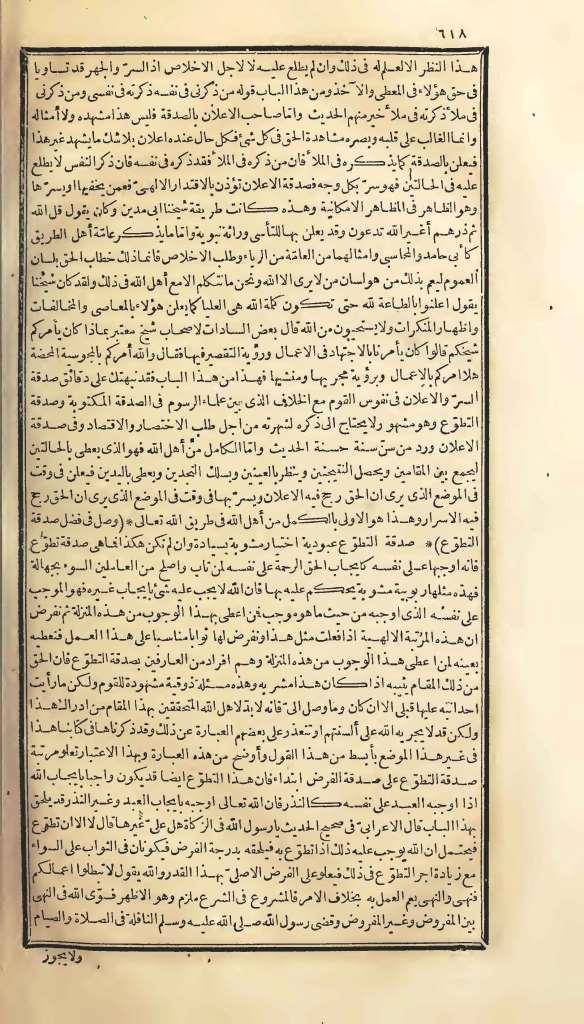 ٦١٨
هذا النظر الا لعلم له فى ذلك وان لم يطلع عليه لا لاجل الاخلاص اذ السر والجهر قد تساويا
فى حق هؤلاء فى المعطى والآخذ ومن هذا الباب قوله من ذكرنى فى نفسه ذكرته فى نفسى ومن ذكرنى
فى ملأ ذكرته فى ملأ خير منهم الحديث واما صاحب الاعلان بالصدقة فليس هذا مشهده ولا أمثاله
وانما الغالب على قلبه وبصره مشاهدة الحق فى كل شئ فكل حال عنده اعلان بلا شك ما يشهد غير هذا
فيعلن بالصدقة كما يذكره فى الملأ فان من ذكره فى الملأ فقد ذكره فى نفسه فان ذكر النفس لا يطلع
عليه فى الحالتين فهو سر بكل وجه فصدقة الاعلان تؤذن بالاقتدار الالهى فعمن يخفيها او يسرها
وهو الظاهر فى المظاهر الامكانية وهذه كانت طريقة شيخنا ابى مدين وكان يقول قل الله
ثم ذرهم أغير الله تدعون وقد يعلن بها للتأسى وراثة نبوية واما ما يذكر عامّة أهل الطريق
كأبى حامد والمحاسبى وامثالهما من العامّة من الرياء وطلب الاخلاص فانما ذلك خطاب الحق بلسان
العموم ليعم بذلك من هو لسان من لا يرى الا الله ونحن ما نتكلم الا مع أهل الله فى ذلك ولقد كان شيخنا
يقول اعلنوا بالطاعة لله حتى تكون كلمة الله هى العليا كما يعلن هؤلاء بالمعاصى والمخالفات
واظهار المنكرات ولا يستحيون من الله قال بعض السادات لاصحاب شيخ معتبر بماذا كان يأمركم
شيخكم قالوا كان يأمرنا بالاجتهاد فى الاعمال ورؤية التقصير فيها فقال والله أمركم بالمجوسية المحضة
هلا امركم بالاعمال وبرؤية مجريها ومنشيها فهذا من هذا الباب فقد نبهتك على دقائق صدقة
السر والاعلان فى نفوس القوم مع الخلاف الذى بين علماء الرسوم فى الصدقة المكتوبة وصدقة
التطوّع وهو مشهو ولا يحتاج الى ذكره لشهرته من اجل طلب الاختصار والاقتصاد وفى صدقة
الاعلان ورد من سنّ سنة حسنة الحديث واما الكامل من أهل الله فهو الذى يعطى بالحالتين
ليجمع بين المقامين ويحصل النتيجتين وينظر بالعينين ويسلك النجدين ويعطى باليدين فيعلن فى وقت
فى الموضع الذى يرى ان الحق رجح فيه الاعلان ويسرّ بها فى وقت فى الموضع الذى يرى ان الحق رجح
فيه الاسرار وهذا هو الاولى بالكمل من أهل الله فى طريق الله تعالى * (وصل فى فضل صدقة
التطوّع) * صدقة التطوّع عبودية اختيار مشوبة بسيادة وان لم تكن هكذا فما هى صدقة تطوّع
فانه اوجبها على نفسه كايجاب الحق الرحمة على نفسه لمن تاب واصلح من العاملين السوء بجهالة
فهذه مثلها ربوبية مشوبة بحكم عليه بها فان الله لا يجب عليه شئ بايجاب غيره فهو الموجب
على نفسه الذى اوجبه من حيث ما هو موجب فمن اعطى بهذا الوجوب من هذه المنزلة ثم نفرض
ان هذه المرتبة الالهية اذا فعلت مثل هذا ونفرض لها ثوابا مناسبا على هذا العمل فنعطيه
بعينه لمن اعطى هذا الوجوب من هذه المنزلة وهم افراد من العارفين بصدقة التطوّع فان الحق
من ذلك المقام يثيبه اذا كان هذا مشربه وهذه مسئلة ذوقية مشهودة للقوم ولكن ما رأيت
احدا نبه عليها قبلى الا ان كان وما وصل الىّ فانه لا بدّ لاهل الله المتحققين بهذا المقام من ادراك هذا
ولكن قد لا يجريه الله على ألسنتهم او تتعذر على بعضهم العبارة عن ذلك وقد ذكرناها فى كتابنا هذا
فى غير هذا الموضع بأبسط من هذا القول وأوضح من هذه العبارة وبهذا الاعتبار تعلو مرتبة
صدقة التطوّع على صدقة الفرض ابتداء فان هذا التطوّع ايضا قد يكون واجبا بايجاب الله
اذا اوجبه العبد على نفسه كالنذر فان الله تعالى اوجبه بايجاب العبد وغير النذر قد يلحق
بهذا الباب قال الاعرابى فى صحيح الحديث يا رسول الله فى الزكاة هل علىّ غيرها قال لا الا ان تطوّع
فيحتمل ان الله يوجب عليه ذلك اذا تطوّع به فيلحقه بدرجة الفرض فيكونان فى الثواب على السواء
مع زيادة اجر التطوّع فى ذلك فيعلو على الفرض الاصلى بهذا القدر والله يقول لا تبطلوا اعمالكم
فنهى والنهى يعم العمل به بخلاف الامر فالمشروع فى الشرع ملزم وهو الاظهر فسوّى الله فى النهى
بين المفروض وغير المفروض وقضى رسول الله صلى الله عليه وسلم النافلة فى الصلاة والصيام
ولا يجوز